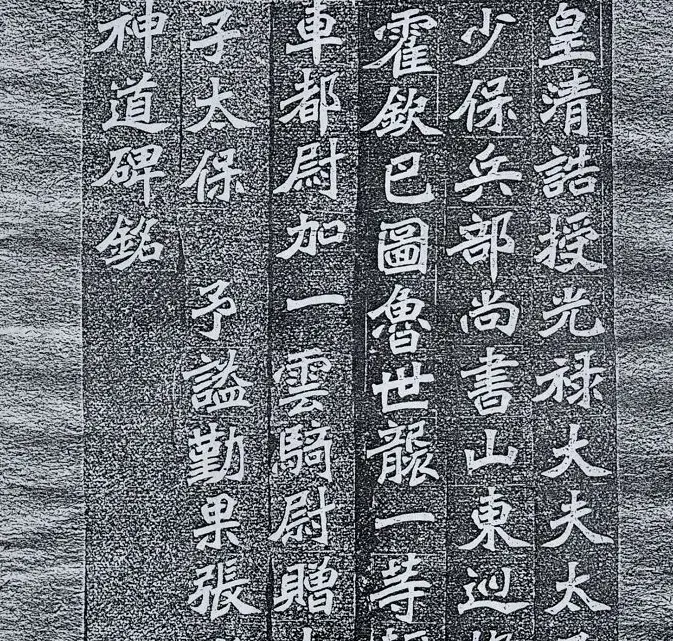 皇清誥授光禄大夫太
少保兵部尚書山東巡
霍欽巴圖魯世襲一等
車都尉加一雲騎尉贈
子太保 予謚勤果張
神道碑銘